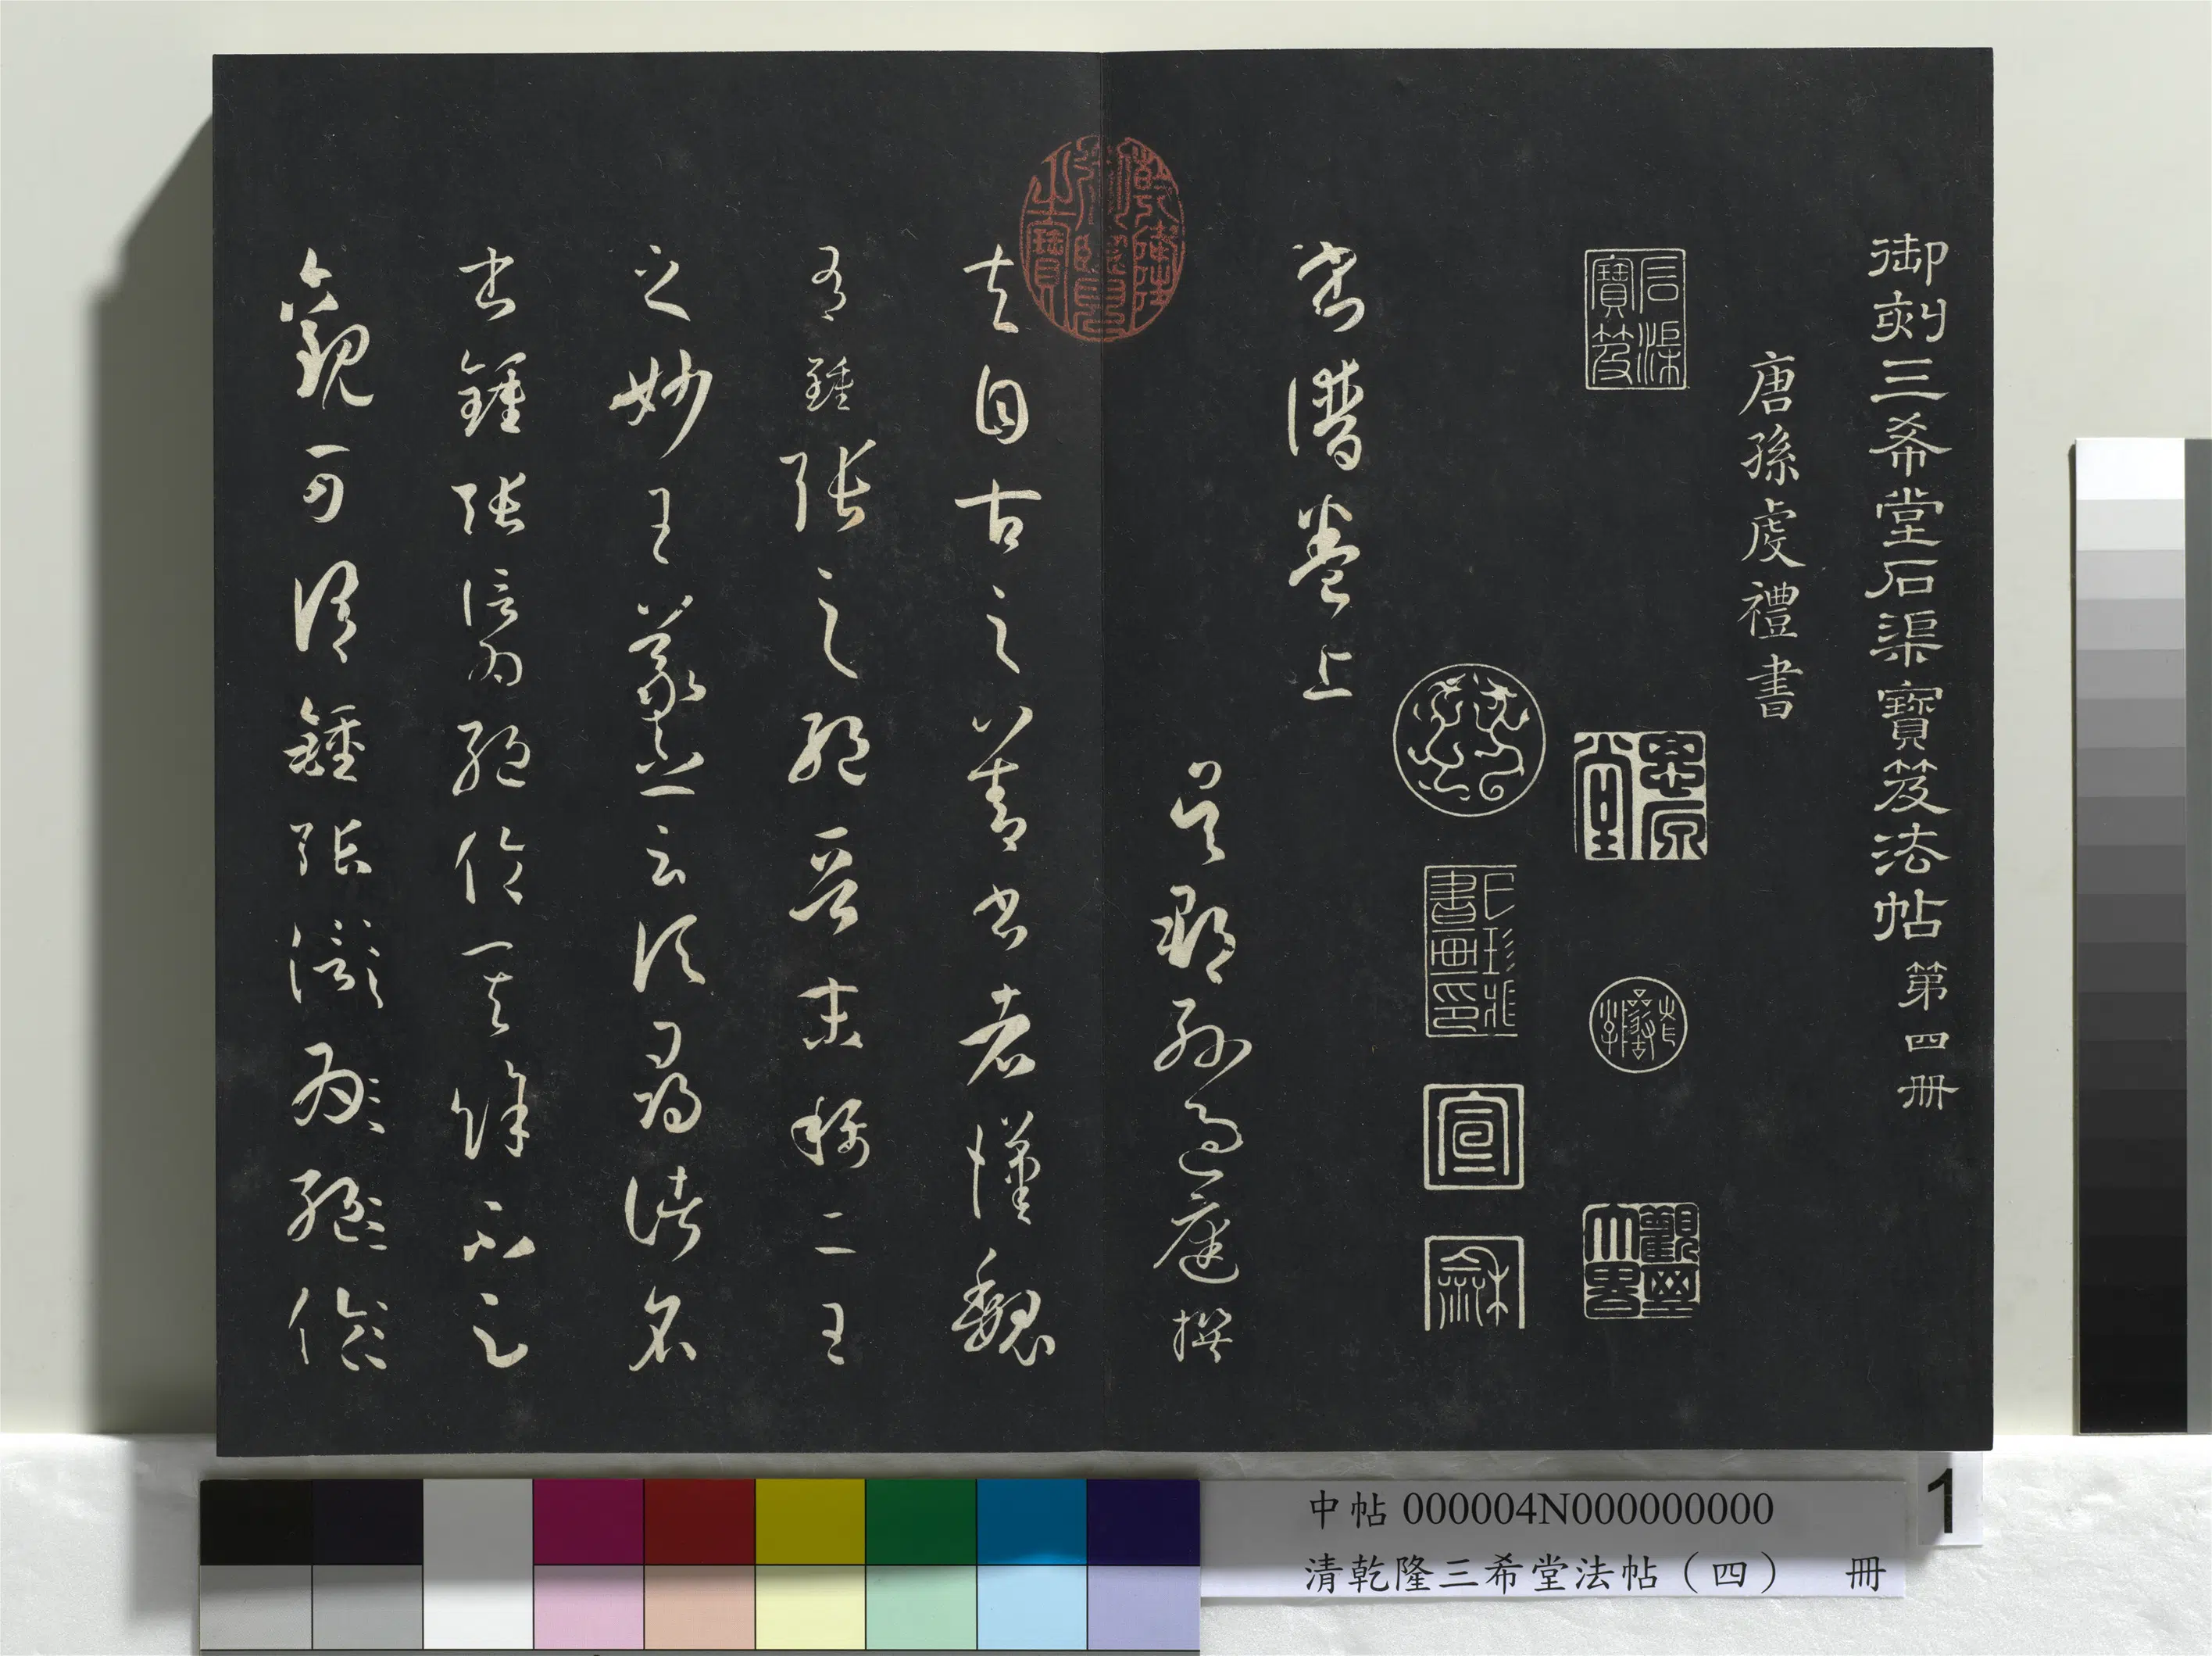 御刻三希堂石渠寶笈法帖 第四冊
唐孫虔禮書
石渠寶笈
思原堂
宣
龢
書譜卷上
吳郡孫過庭撰
乾隆御覽之寶
夫自古之善書者漢魏
有鍾張之絕晉末稱二王
之妙王羲之云頃尋諸名
書鍾張信為絕倫其餘不足
觀可謂鍾張信為絕倫
中帖 000004N000000000
清乾隆三希堂法帖（四） 冊
1